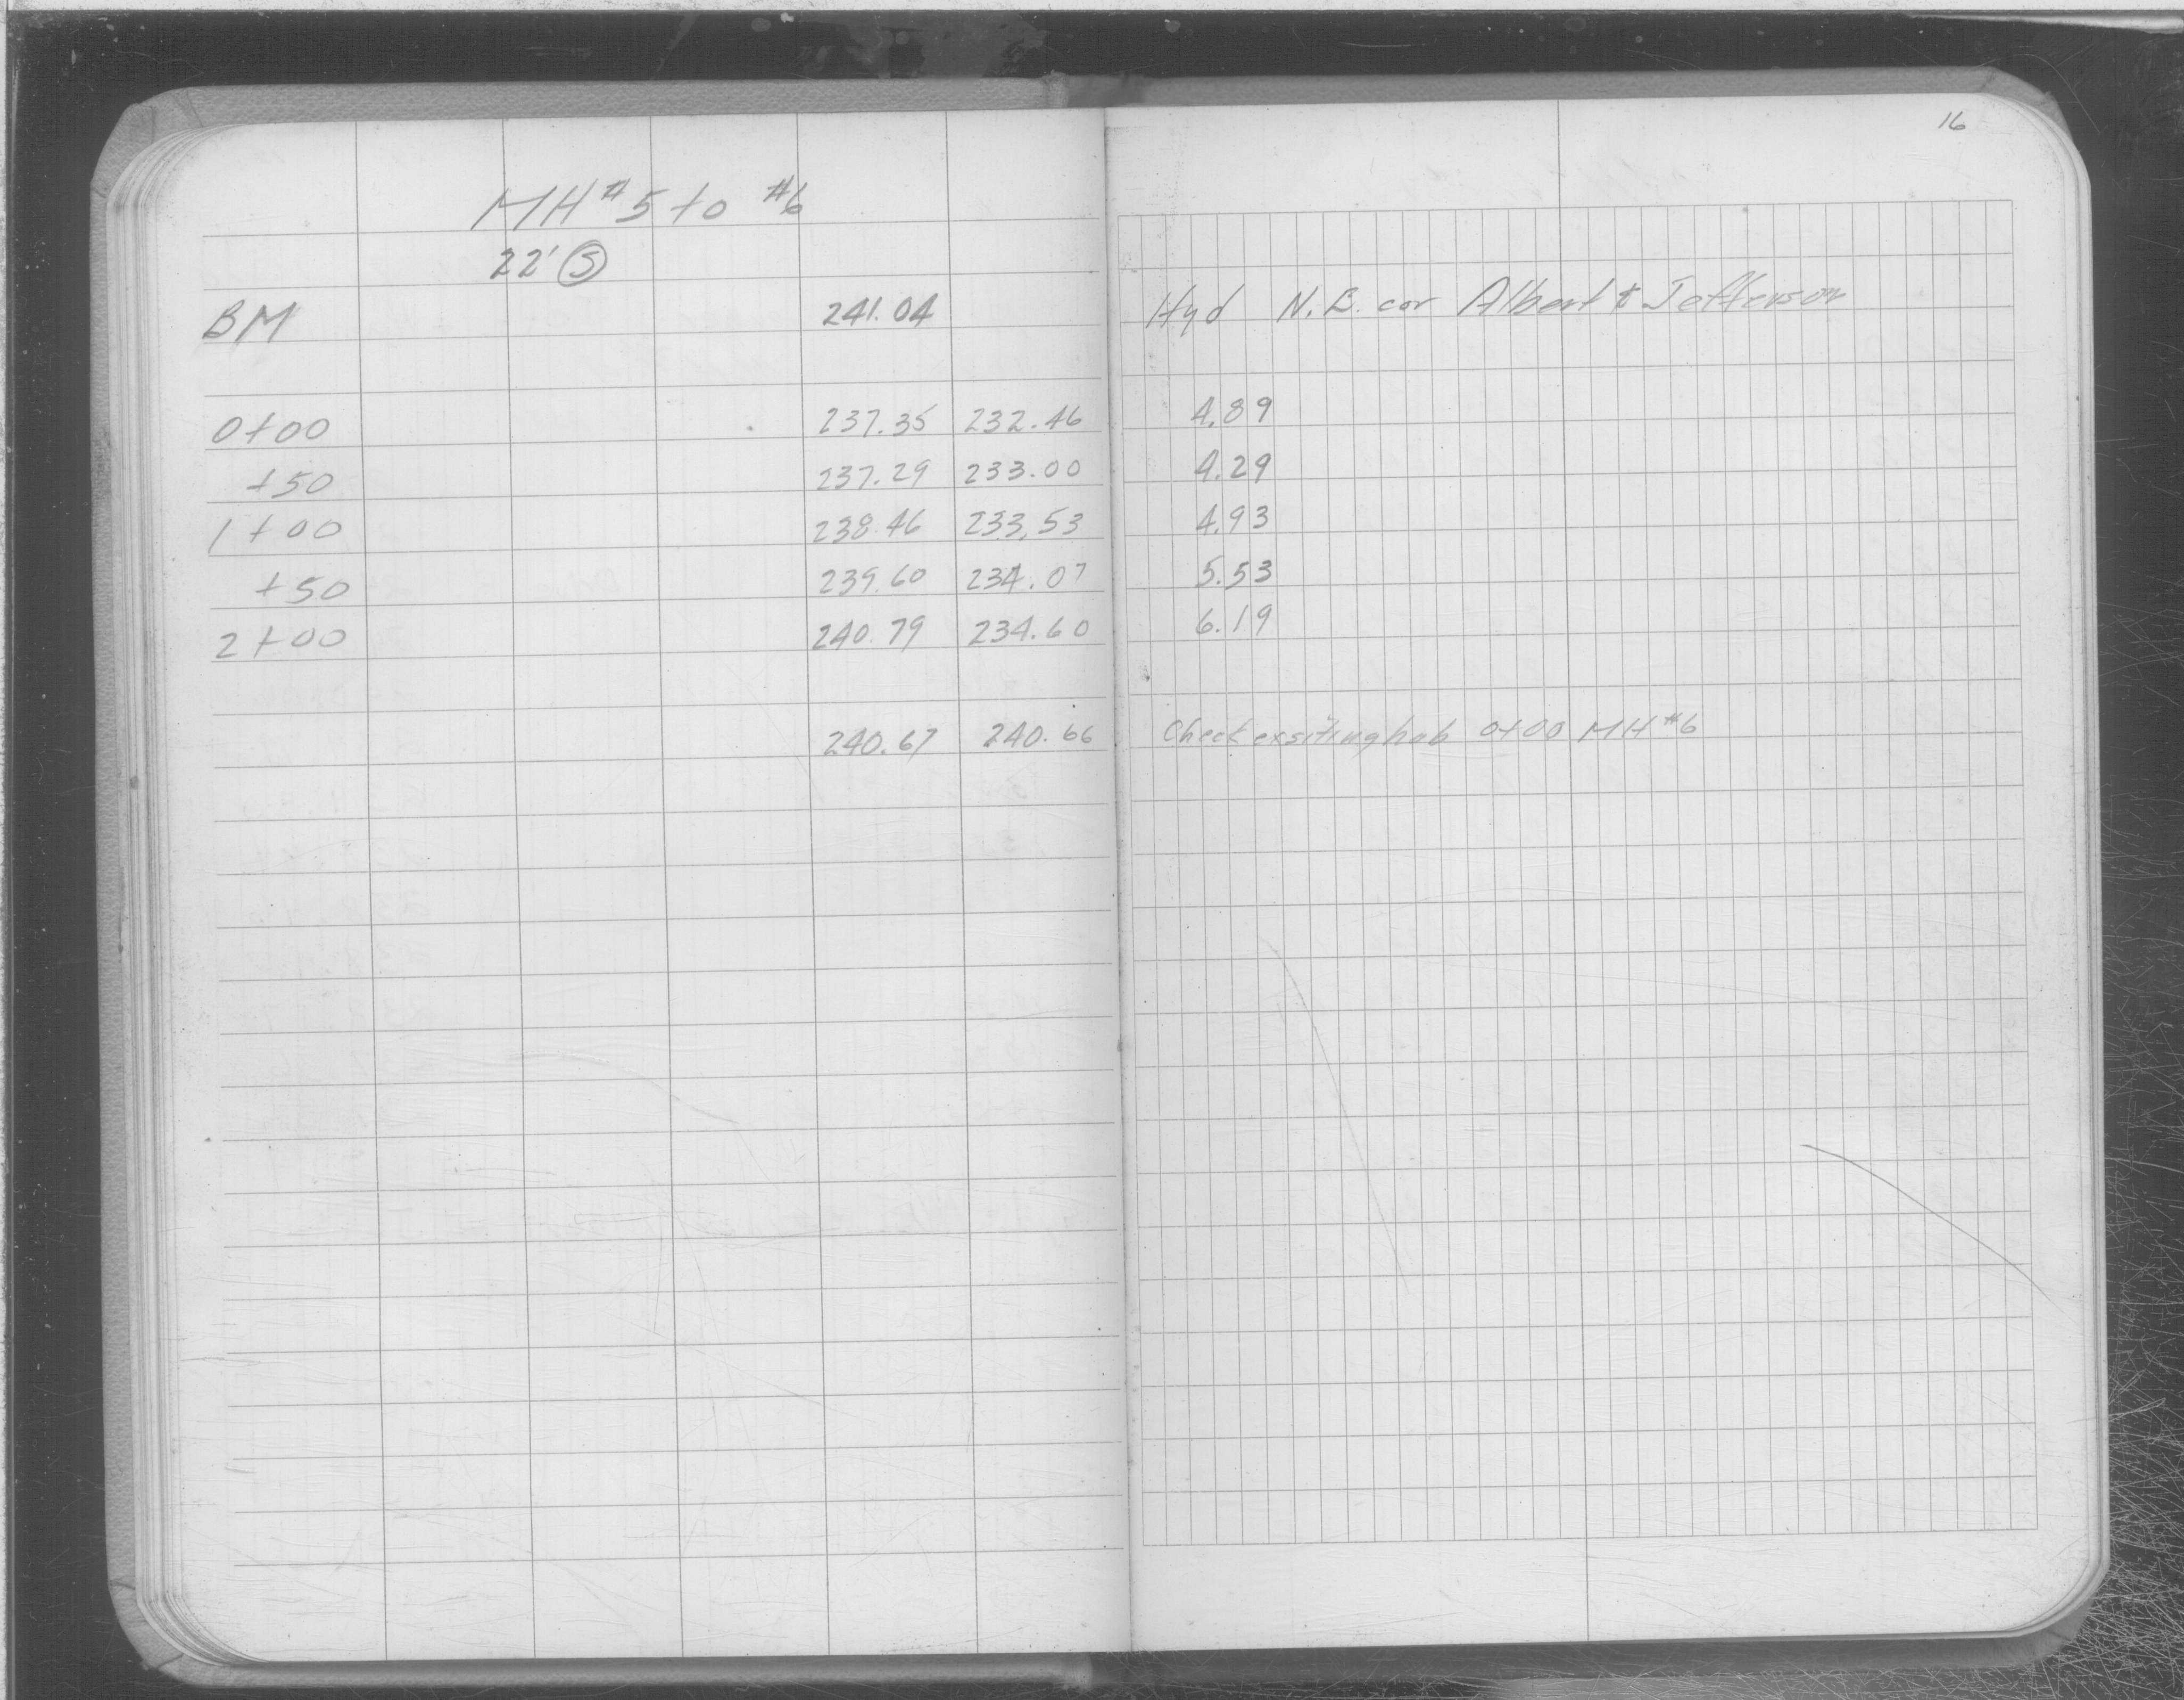 16
MH #5 to #6
22' Ⓢ
BM 241.04 Hyd N.E. cor Albert & Jefferson
0+00 237.35 232.46 4.89
+50 237.29 233.00 4.29
1+00 238.46 233.53 4.93
+50 239.60 234.07 5.53
2+00 240.79 234.60 6.19
240.67 240.66 Check exsiting hub 0+00 MH #6